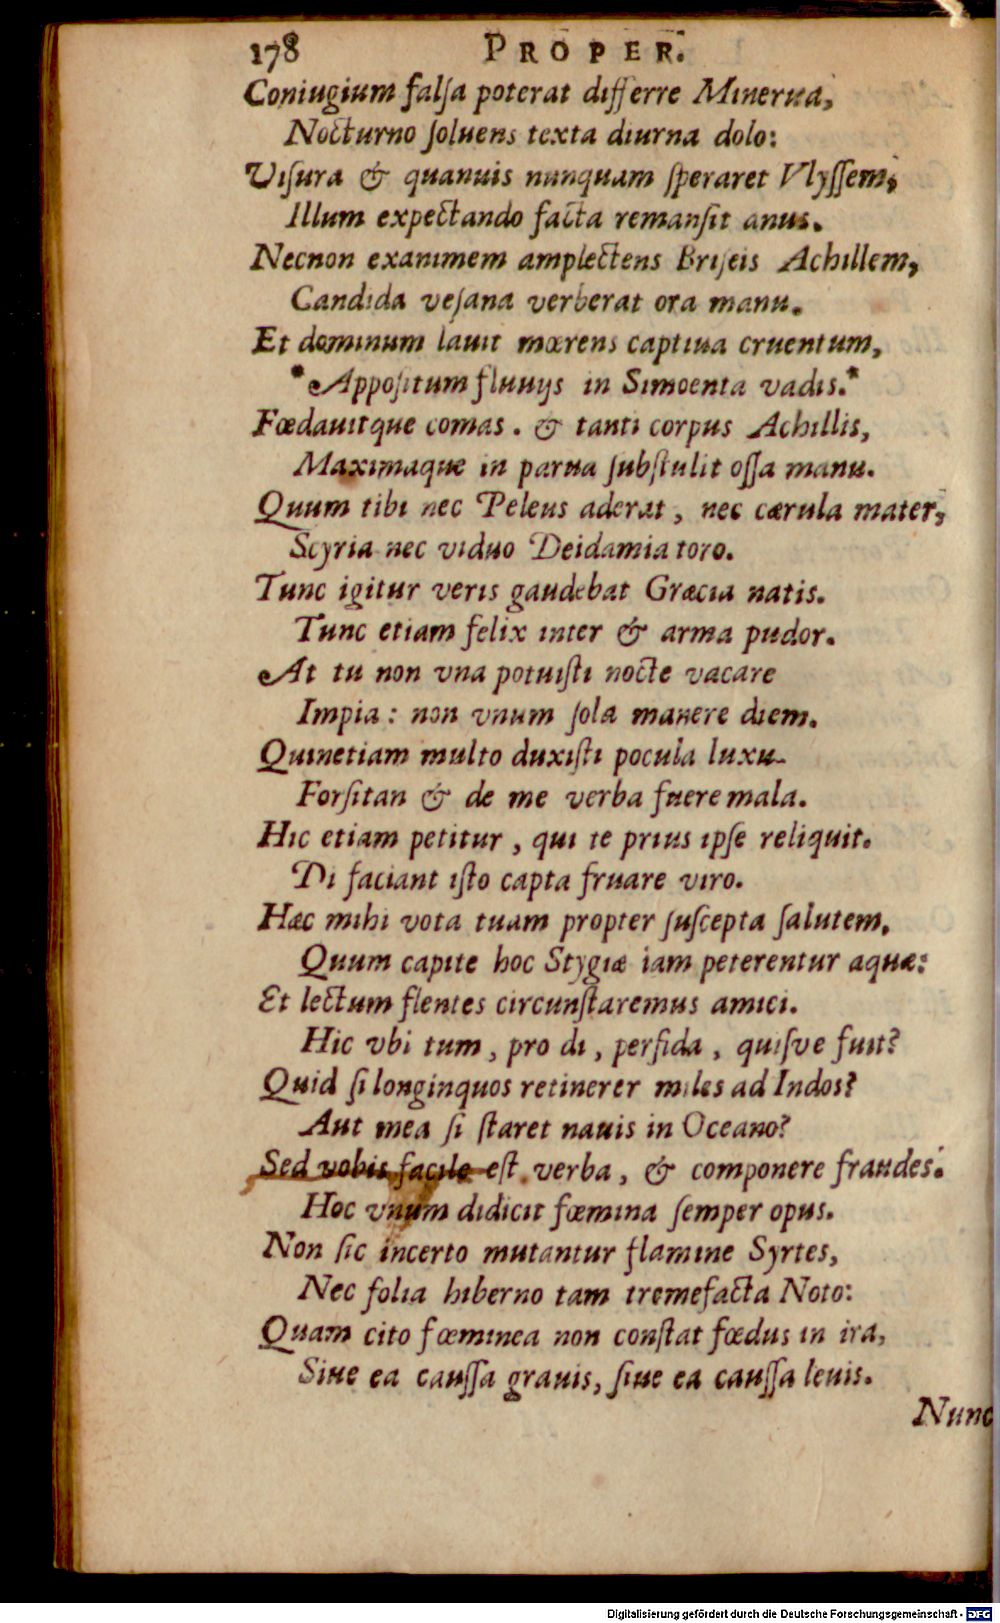 178 PROPER.
Coniugium falſa poterat differre Minerua,
Nocturno ſoluens texta diurna dolo:
Viſura & quanuis nunquam ſperaret Vlyſſem,
Illum expectando facta remanſit anus.
Necnon exanimem amplectens Briſeis Achillem,
Candida veſana verberat ora manu.
Et dominum lauit mœrens captiua cruentum,
*Appoſitum fluuijs in Simoenta vadis.*
Fœdauitque comas. & tanti corpus Achillis,
Maximaque in parua ſubſtulit oſſa manu.
Quum tibi nec Peleus aderat, nec cærula mater,
Scyria nec viduo Deidamia toro.
Tunc igitur veris gaudebat Græcia natis.
Tunc etiam felix inter & arma pudor.
At tu non vna potuiſti nocte vacare
Impia: non vnum ſola manere diem.
Quinetiam multo duxiſti pocula luxu
Forſitan & de me verba fuere mala.
Hic etiam petitur, qui te prius ipſe reliquit.
Di faciant iſto capta fruare viro.
Hæc mihi vota tuam propter ſuſcepta ſalutem,
Quum capite hoc Stygiæ iam peterentur aquæ:
Et lectum flentes circunſtaremus amici.
Hic vbi tum, pro di, perfida, quiſve fuit?
Quid ſi longinquos retinerer miles ad Indos?
Aut mea ſi ſtaret nauis in Oceano?
Sed vobis facile eſt verba, & componere fraudes.
Hoc vnum didicit fœmina ſemper opus.
Non ſic incerto mutantur flamine Syrtes,
Nec folia hiberno tam tremefacta Noto:
Quam cito fœminea non conſtat fœdus in ira,
Siue ea cauſſa grauis, ſiue ea cauſſa leuis.
Nunc
Digitalisierung gefördert durch die Deutsche Forschungsgemeinschaft - DFG